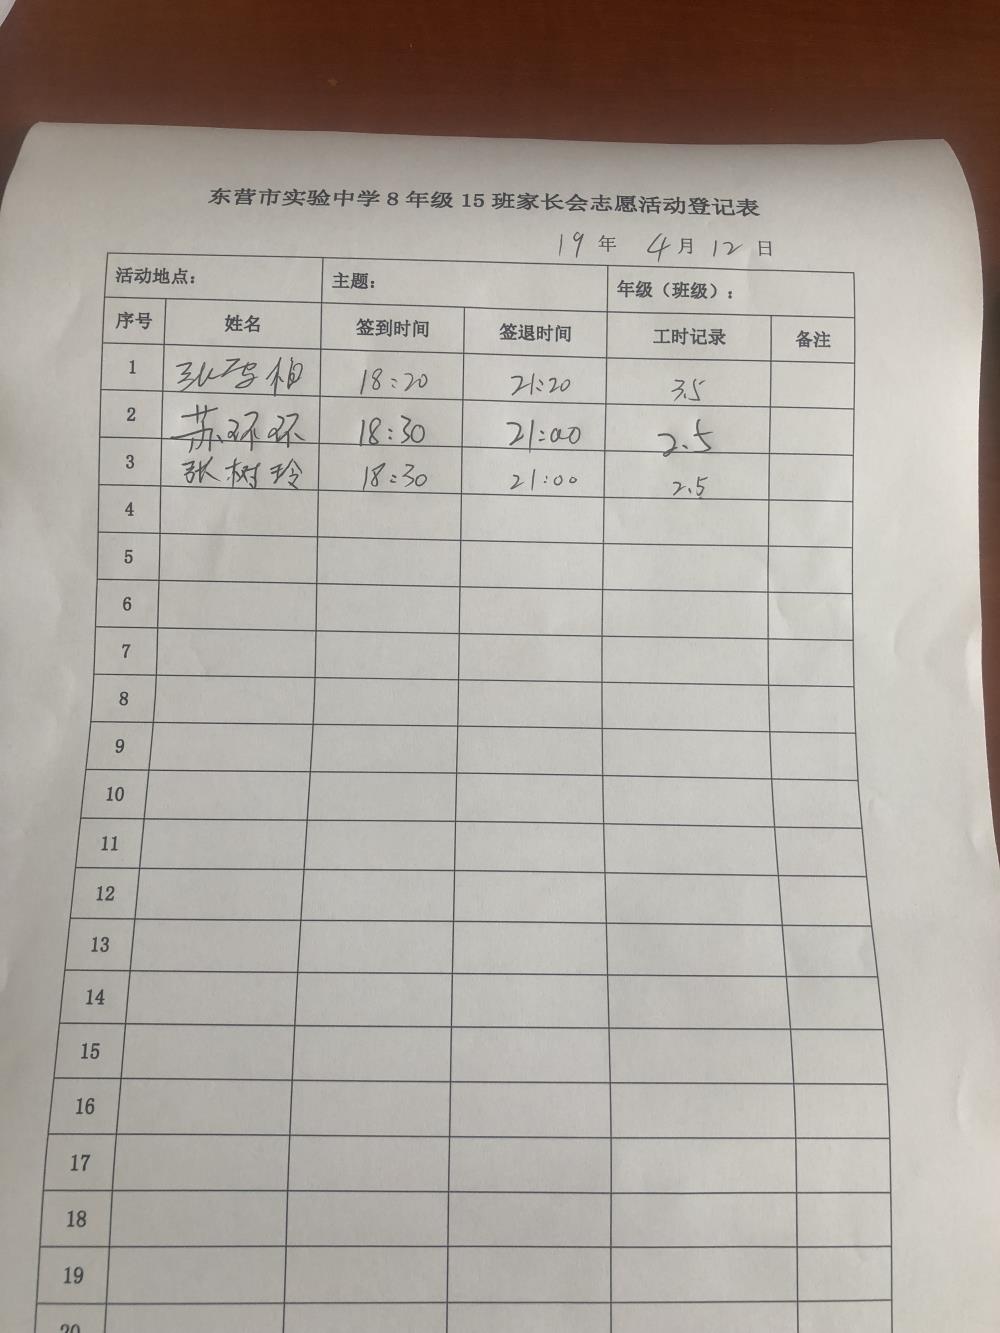 东营市实验中学8年级15班家长会志愿活动登记表
19年 4月12日
活动地点: 主题: 年级（班级）:
序号 姓名 签到时间 签退时间 工时记录 备注
1 18:20 21:20 3.5
2 苏环环 18:30 21:00 2.5
3 张树玲 18:30 21:00 2.5
4
5
6
7
8
9
10
11
12
13
14
15
16
17
18
19
20